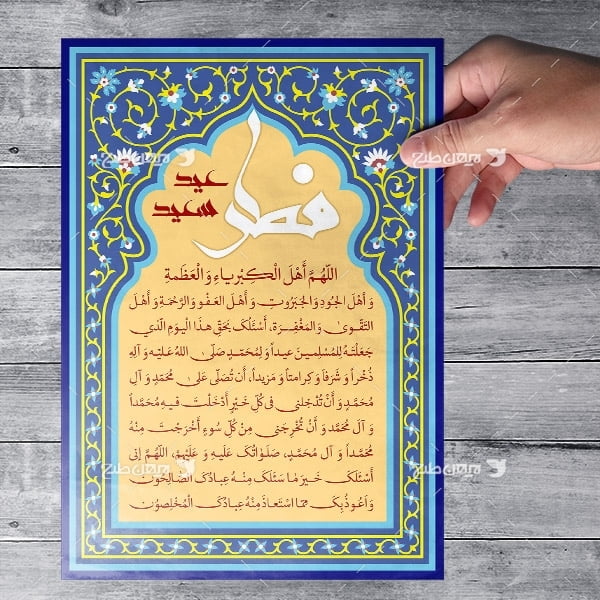 عید سعید
فطر
اللّهُمَّ أَهْلَ الْكِبْرِياءِ وَالْعَظَمَةِ
وَ أَهْلَ الجُودِ وَ الجَبَرُوتِ وَ أَهْلَ العَفْوِ وَ الرَّحْمَةِ وَ أَهْلَ
التَّقْوىٰ وَ المَغْفِرَةِ، أَسْئَلُكَ بِحَقِّ هذَا الْيَوْمِ الَّذي
جَعَلْتَهُ لِلْمُسْلِمينَ عيداً وَ لِمُحَمَّدٍ صَلَّى اللهُ عَلَيْهِ وَ آلِهِ
ذُخْراً وَ شَرَفاً وَ كِرامَتاً وَ مَزيداً، أَنْ تُصَلِّىَ عَلىٰ مُحَمَّدٍ وَ آلِ
مُحَمَّدٍ وَ أَنْ تُدْخِلَني فى كُلِّ خَيْرٍ أَدْخَلْتَ فيهِ مُحَمَّداً
وَ آلَ مُحَمَّدٍ وَ أَنْ تُخْرِجَني مِنْ كُلِّ سُوءٍ أَخْرَجْتَ مِنْهُ
مُحَمَّداً وَ آلَ مُحَمَّدٍ، صَلَواتُكَ عَلَيْهِ وَ عَلَيْهِمْ، اللّهُمَّ إِنّى
أَسْئَلُكَ خَيْرَ ما سَئَلَكَ مِنْهُ عِبادُكَ الصّالِحُونَ
وَ أَعُوذُ بِكَ مِمَّا اسْتَعاذَ مِنْهُ عِبادُكَ الْمُخْلِصُونَ
میهن طرح
میهن طرح
میهن طرح
میهن طرح